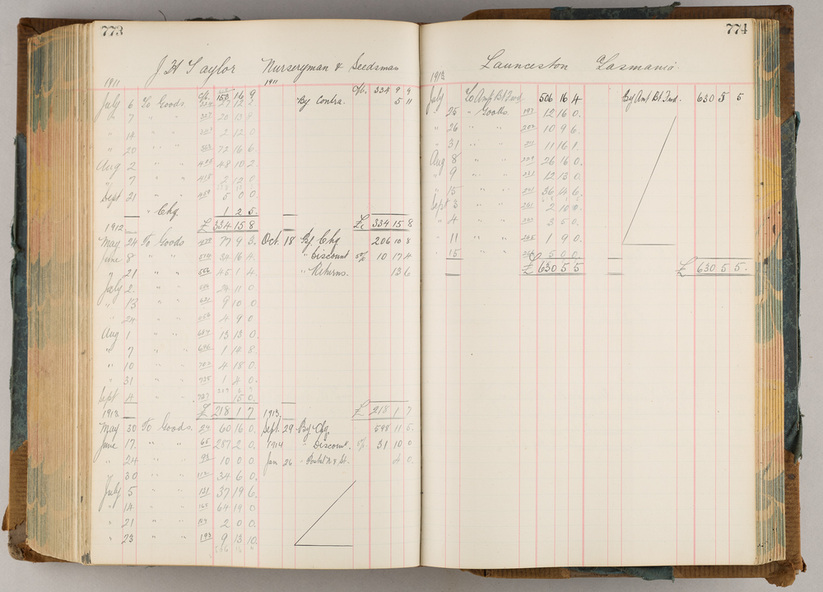 773
J H Taylor Nurseryman & Seedsman
1911 1911
July 6 To Goods By Contra. 5 11
" 7 " "
" 14 " " 2 12 0
" 20 " " 72 16 6
Aug 2 " " 48 10 2
" 7 " "
Sept 21 " " 5 0 0
" Chq 1 2 5
£ 334 15 8 £ 334 15 8
1912
May 24 To Goods 77 9 3 Oct. 18 By Chq 206 10 8
June 8 " " " Discount 5% 10 17 4
" 21 " " 45 1 4 " Returns. 13 6
July 2 " " 24 11 0
" 13 " " 9 10 0
" 24 " " 4 9 0
Aug 1 " " 13 13 0
" 7 " " 1 14 8
" 10 " " 4 18 0
" 31 " " 1 4 0
Sept 4 " " 15 0
£ 218 1 7 £ 218 1 7
1913 1913
May 30 To Goods 60 16 0 Sept. 29 By Chq 598 11 5
June 17 " " 287 2 0 1914 " Discount 5% 31 10 0
" 24 " " 10 0 0 Jan 26 4 0
" 30 " " 34 6 0
July 5 " " 37 19 6
" 14 " " 64 19 0
" 21 " " 2 0 0
" 23 " " 9 13 10
774
Launceston Tasmania
1913
July To Amt Bt Fwd. 506 16 4 By Amt Bt Fwd. 630 5 5
" 25 " Goods 12 16 0
" 26 " " 10 9 6
" 31 " " 11 16 1
Aug 8 " " 26 16 0
" 9 " " 12 13 0
" 15 " " 36 4 6
Sept 3 " " 2 10 0
" 4 " " 3 5 0
" 11 " " 1 9 0
" 15 " " 5 0 0
£ 630 5 5 £ 630 5 5